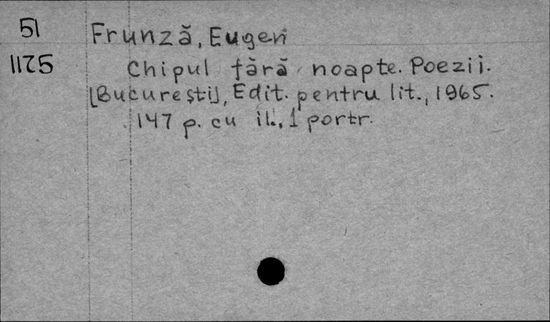 51
1175
Frunză, Eugen
Chipul fără noapte. Poezii.
[București], Edit. pentru lit., 1965.
147 p. cu il., 1 portr.